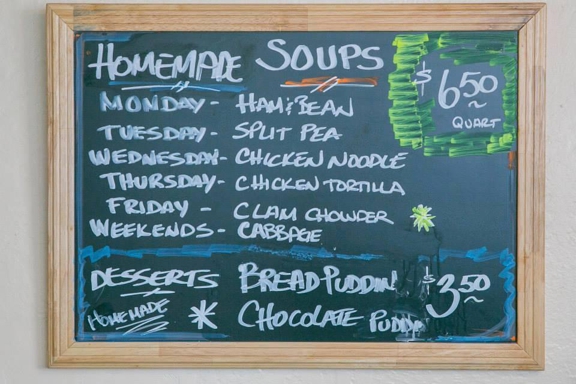 HOMEMADE SOUPS
$6.50
QUART
MONDAY - HAM & BEAN
TUESDAY - SPLIT PEA
WEDNESDAY - CHICKEN NOODLE
THURSDAY - CHICKEN TORTILLA
FRIDAY - CLAM CHOWDER
WEEKENDS - CABBAGE
DESSERTS BREAD PUDDIN' $3.50
HOMEMADE * CHOCOLATE PUDD